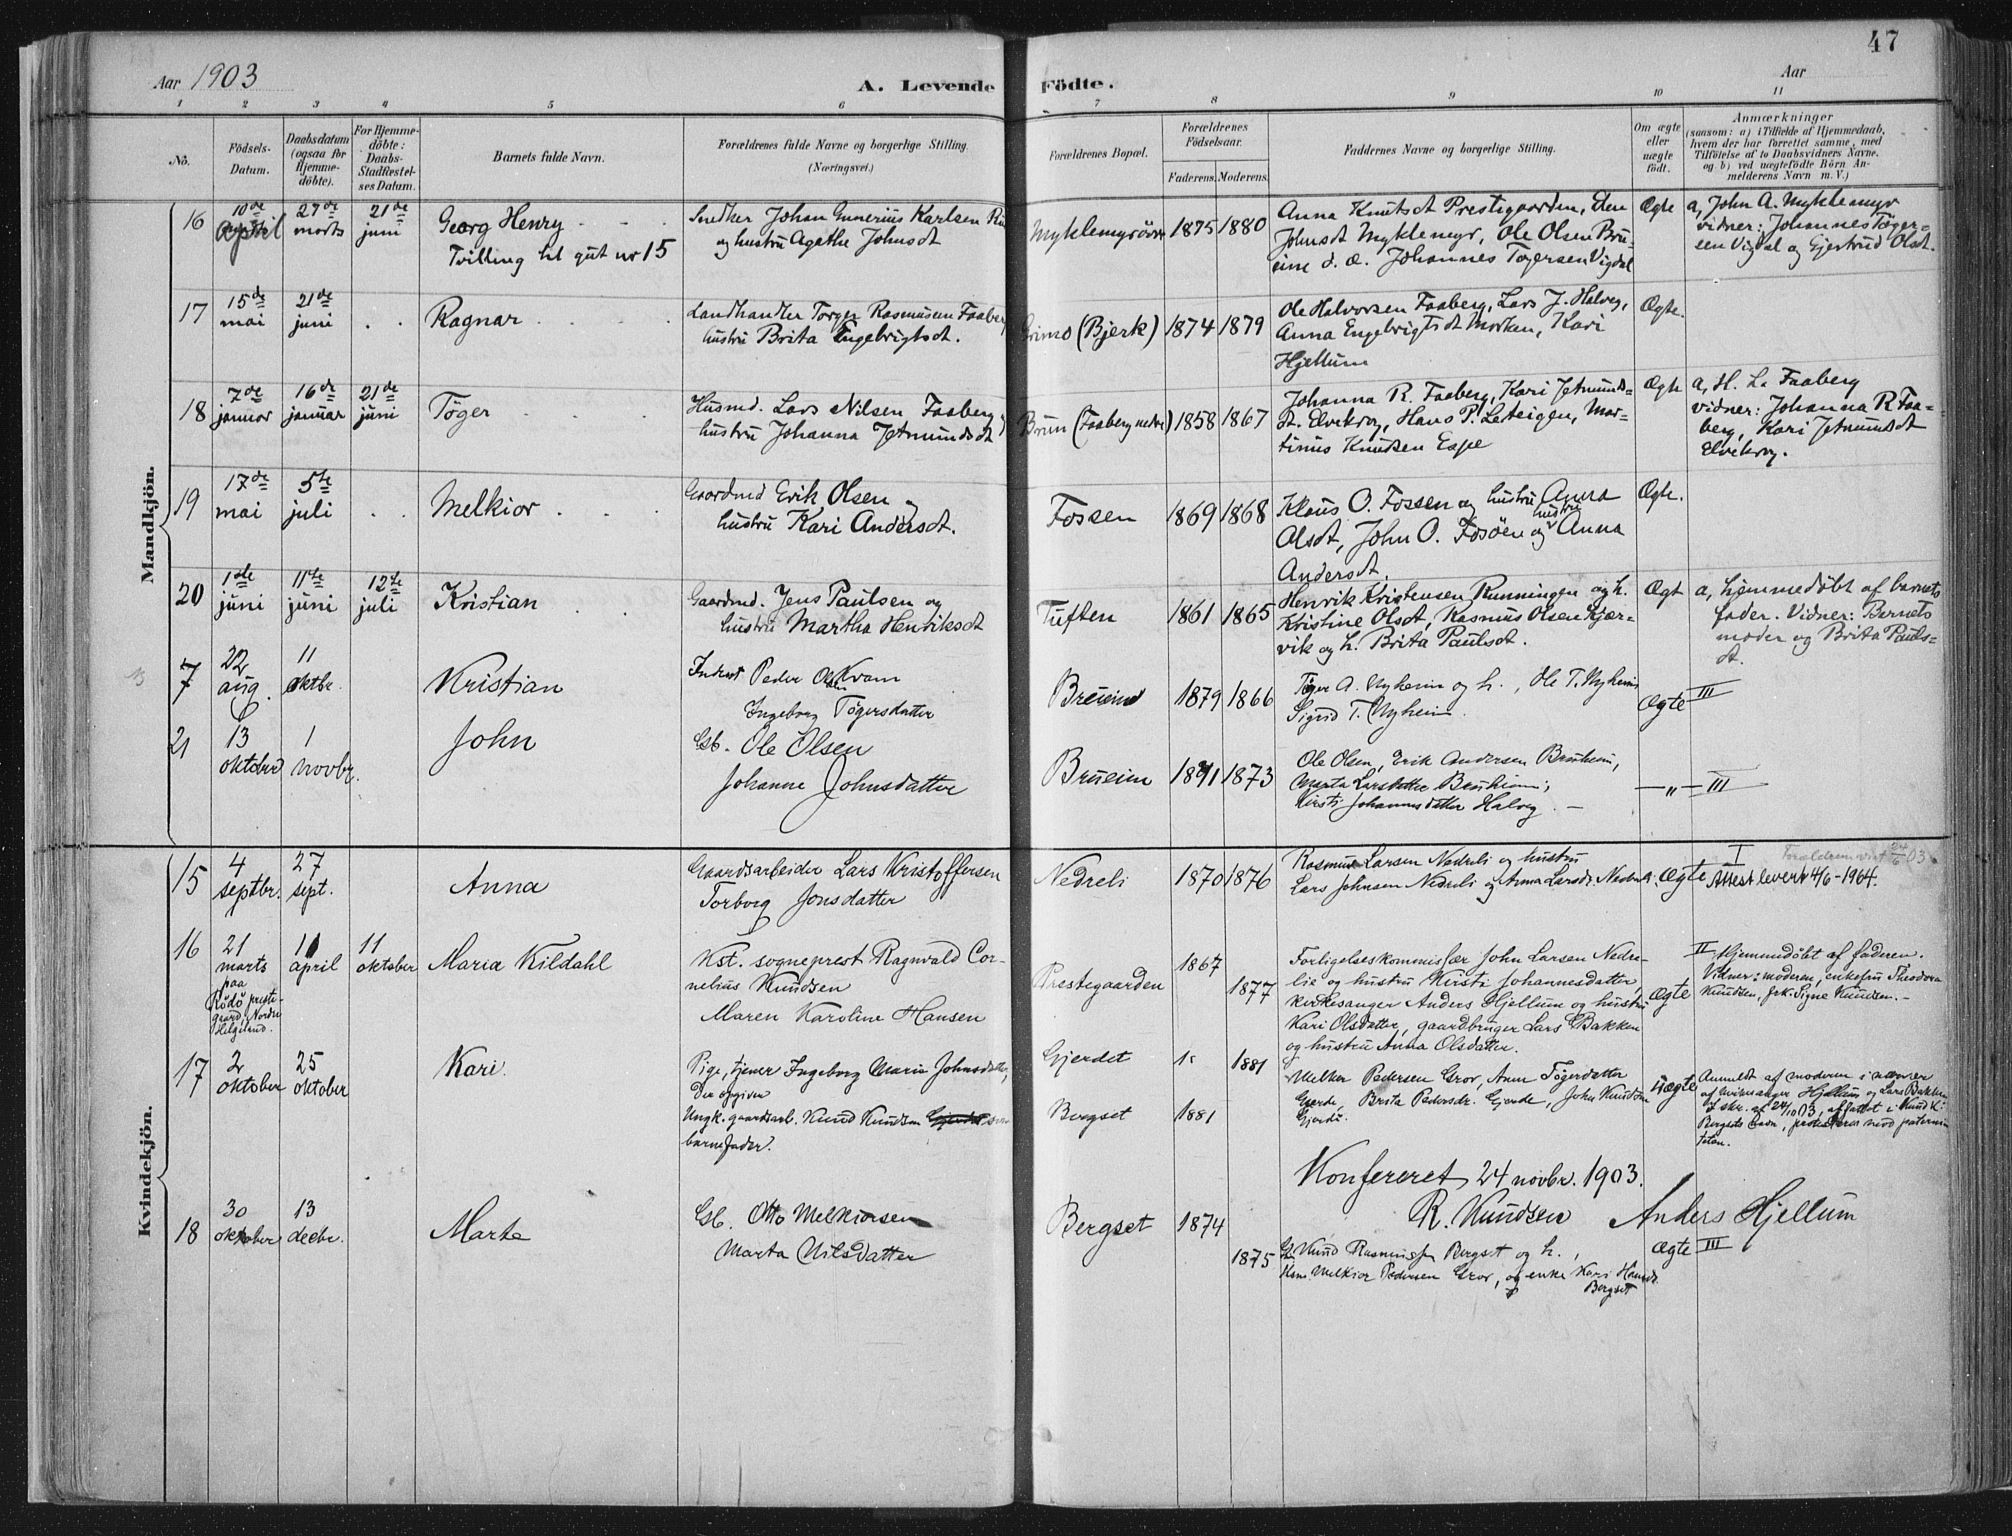 47
Aar 1903
A. Levende Födte.
Aar
1 2 3 4 5 6 7 8 9 10 11
No.
Födsels-
Datum.
Daabsdatum
(ogsaa for
Hjemme-
döbte).
For Hjemme-
döbte:
Daabs-
Stadfæstel-
ses Datum.
Barnets fulde Navn.
Forældrenes fulde Navne og borgerlige Stilling.
(Næringsvei.)
Forældrenes Bopæl.
Forældrenes
Födselsaar.
Faderens. Moderens.
Faddernes Navne og borgerlige Stilling.
Om ægte
eller
uægte
födt.
Anmærkninger
(saasom: a) i Tilfælde af Hjemmedaab,
hvem der har forrettet samme, med
Tilföielse af to Daabsvidners Navne,
og b) ved uægtefödte Börn An-
melderens Navn m. V.)
Mandkjön.
16
10de
april
27de
marts
21de
juni
Georg Henry
Tvilling til gut nr 15
Snedker Johan Gunerius Karlsen
og hustru Agathe Johnsdt
Myklemyrören
1875 1880
Anna Knutsdt Prestegaarden, Elen
Johnsdt Myklemyr, Ole Olsen Bru-
eim d. æ. Johannes Tøgersen Vigdal
Ægte
a, John A. Myklemyr
vidner: Johannes Töger-
sen Vigdal og Gjertrud Olsdt.
17
15de
mai
21de
juni
Ragnar
Landhandler Torger Rasmusen Faaberg
hustru Brita Engebrigtsdt.
Grimo (Bjerk)
1874 1879
Ole Halvorsen Faaberg, Lars J. Halveg,
Anna Engebrigtsdt Morken, Kari
Hjellum
Ægte.
18
7de
januar
16de
januar
21de
juni
Töger
Husmd. Lars Nilsen Faaberg
hustru Johanna Jetmundsdt
Brun (Faaberg nedre)
1858 1867
Johanna R. Faaberg, Kari Jetmunds-
dt. Elvekrog, Hans P. Leteigen, Mar-
tinus Knudsen Espe
Ægte
a, H. L. Faaberg
vidner: Johanna R Faa-
berg, Kari Jetmundsdt
Elvekrog.
19
17de
mai
5te
juli
Melkior
Gaardmd Erik Olsen og
hustru Kari Andersdt.
Fossen
1869 1868
Klaus O. Fossen og hustru Anna
Olsdt, John O. Fosöen og hustru Anna
Andersdt.
Ægte.
20
1ste
juni
11te
juni
12te
juli
Kristian
Gaardmd. Jens Paulsen og
hustru Martha Henriksdt
Tuften
1861 1865
Henrik Kristensen Runningen og h.
Kristine Olsdt, Rasmus Olsen Kjær-
vik og h. Brita Paulsdt.
Ægt
a, hjemmedøbt af barnets
fader. Vidner: Barnets
moder og Brita Pauls-
dt.
7
22
aug.
11
oktbr.
Kristian
Inderst Peder Olsen Kvam
Ingeborg Tögersdatter
Brueim
1879 1866
Töger A. Nyheim og h., Ole T. Nyheim
Sigrid T. Nyheim.
Ægte
III
21
13
oktober
1
novbr.
John
Gb. Ole Olsen
Johanne Johnsdatter
Brueim
1871 1873
Ole Olsen, Erik Andersen Bruheim,
Marta Larsdatter Bruheim;
Kirsti Johannesdatter Halveg. —
— „ —
III
Kvindekjön.
15
4
septbr.
27
sept.
Anna
Gaardsarbeider Lars Kristoffersen
Torborg Jonsdatter
Nedreli
1870 1876
Rasmus Larsen Nedreli og hustru
Lars Johnsen Nedreli og Anna Larsdt. Nedreli.
Ægte
I
Attest levert 4/6-1964.
16
21
marts
paa
Rödö preste-
gaard, Nordre
Helgeland.
11
april
11
oktober
Maria Kildahl
Kst. sogneprest Ragnvald Cor-
nelius Knudsen
Maren Karoline Hansen
Prestegaarden
1867
1877
Forligelseskommisfær John Larsen Nedre-
lie og hustru Kirsti Johannesdatter,
kirkesanger Anders Hjellum og hustru
Kari Olsdatter, gaardbruger Lars Bakken
og hustru Anna Olsdatter.
Ægte
II Hjemmedöbt af faderen.
Vidner: moderen, enkefru Theodora
Knudsen, frk. Signe Knudsen. —
17
2
oktober
25
oktober
Kari.
Pige, tjener Ingeborg Marie Johnsdatter,
Der opgiver
Ungk. gaardsarb. Knud Knudsen Gjerdet som
barnefader.
Gjerdet
Bergset
1881
1881
Melker Pedersen Gror, Anna Tögersdatter
Gjerde, Brita Pedersdr. Gjerde, John Knudsen
Gjerde.
Uægte
Anmeldt af moderen i nærvær
af kirkesanger Hjellum og Lars Bakken
I skr. af 24/10 03, affattet i Knud K.
Bergsets navn, protesteres mod paterni-
teten.
Konfereret 24 novbr. 1903.
R. Knudsen Anders Hjellum
18
30
oktober
13
decbr.
Marta
Gb. Otto Melkiorsen
Marta Nilsdatter
Bergset
1874
1875
Gb. Knud Rasmussen Bergset og h.,
Melkior Pedersen Gror, og enke Kari Hansdt.
Bergset
Ægte
III